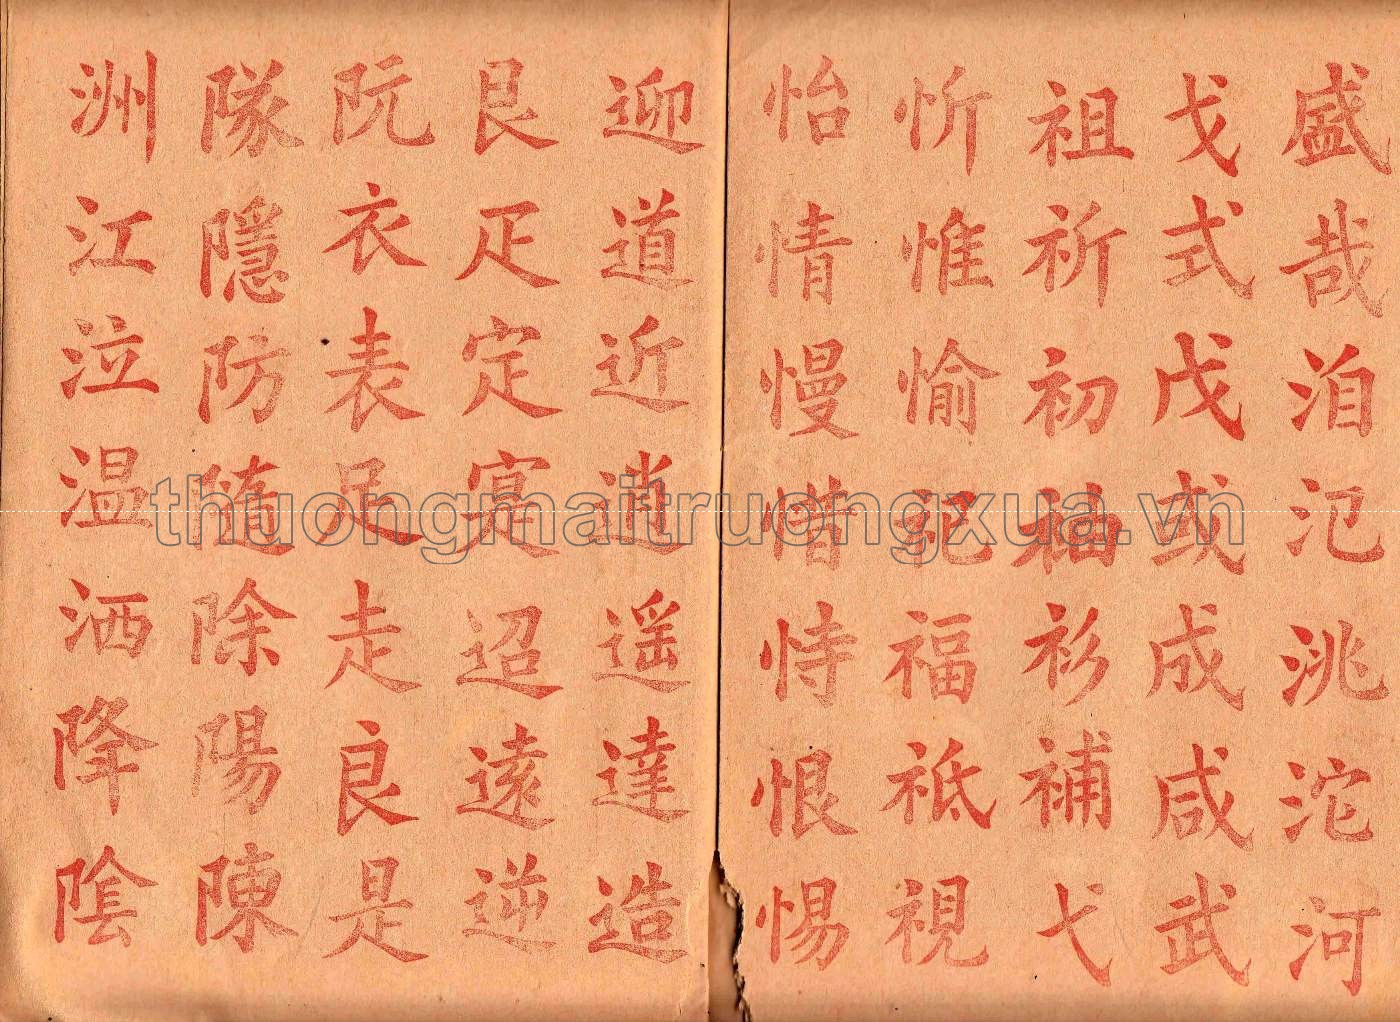 洲江泣温洒降隂
隊隱防隨除陽陳
阮衣表足走良是
艮疋定寔迢遠逆
迎道近逍遥達造
怡情慢惜恃恨惕
忻惟愉祀福祗視
祖祈初袖衫補弋
戈式戊或成咸武
盛哉洎氾洮沱河
thuongmaitruongxua.vn